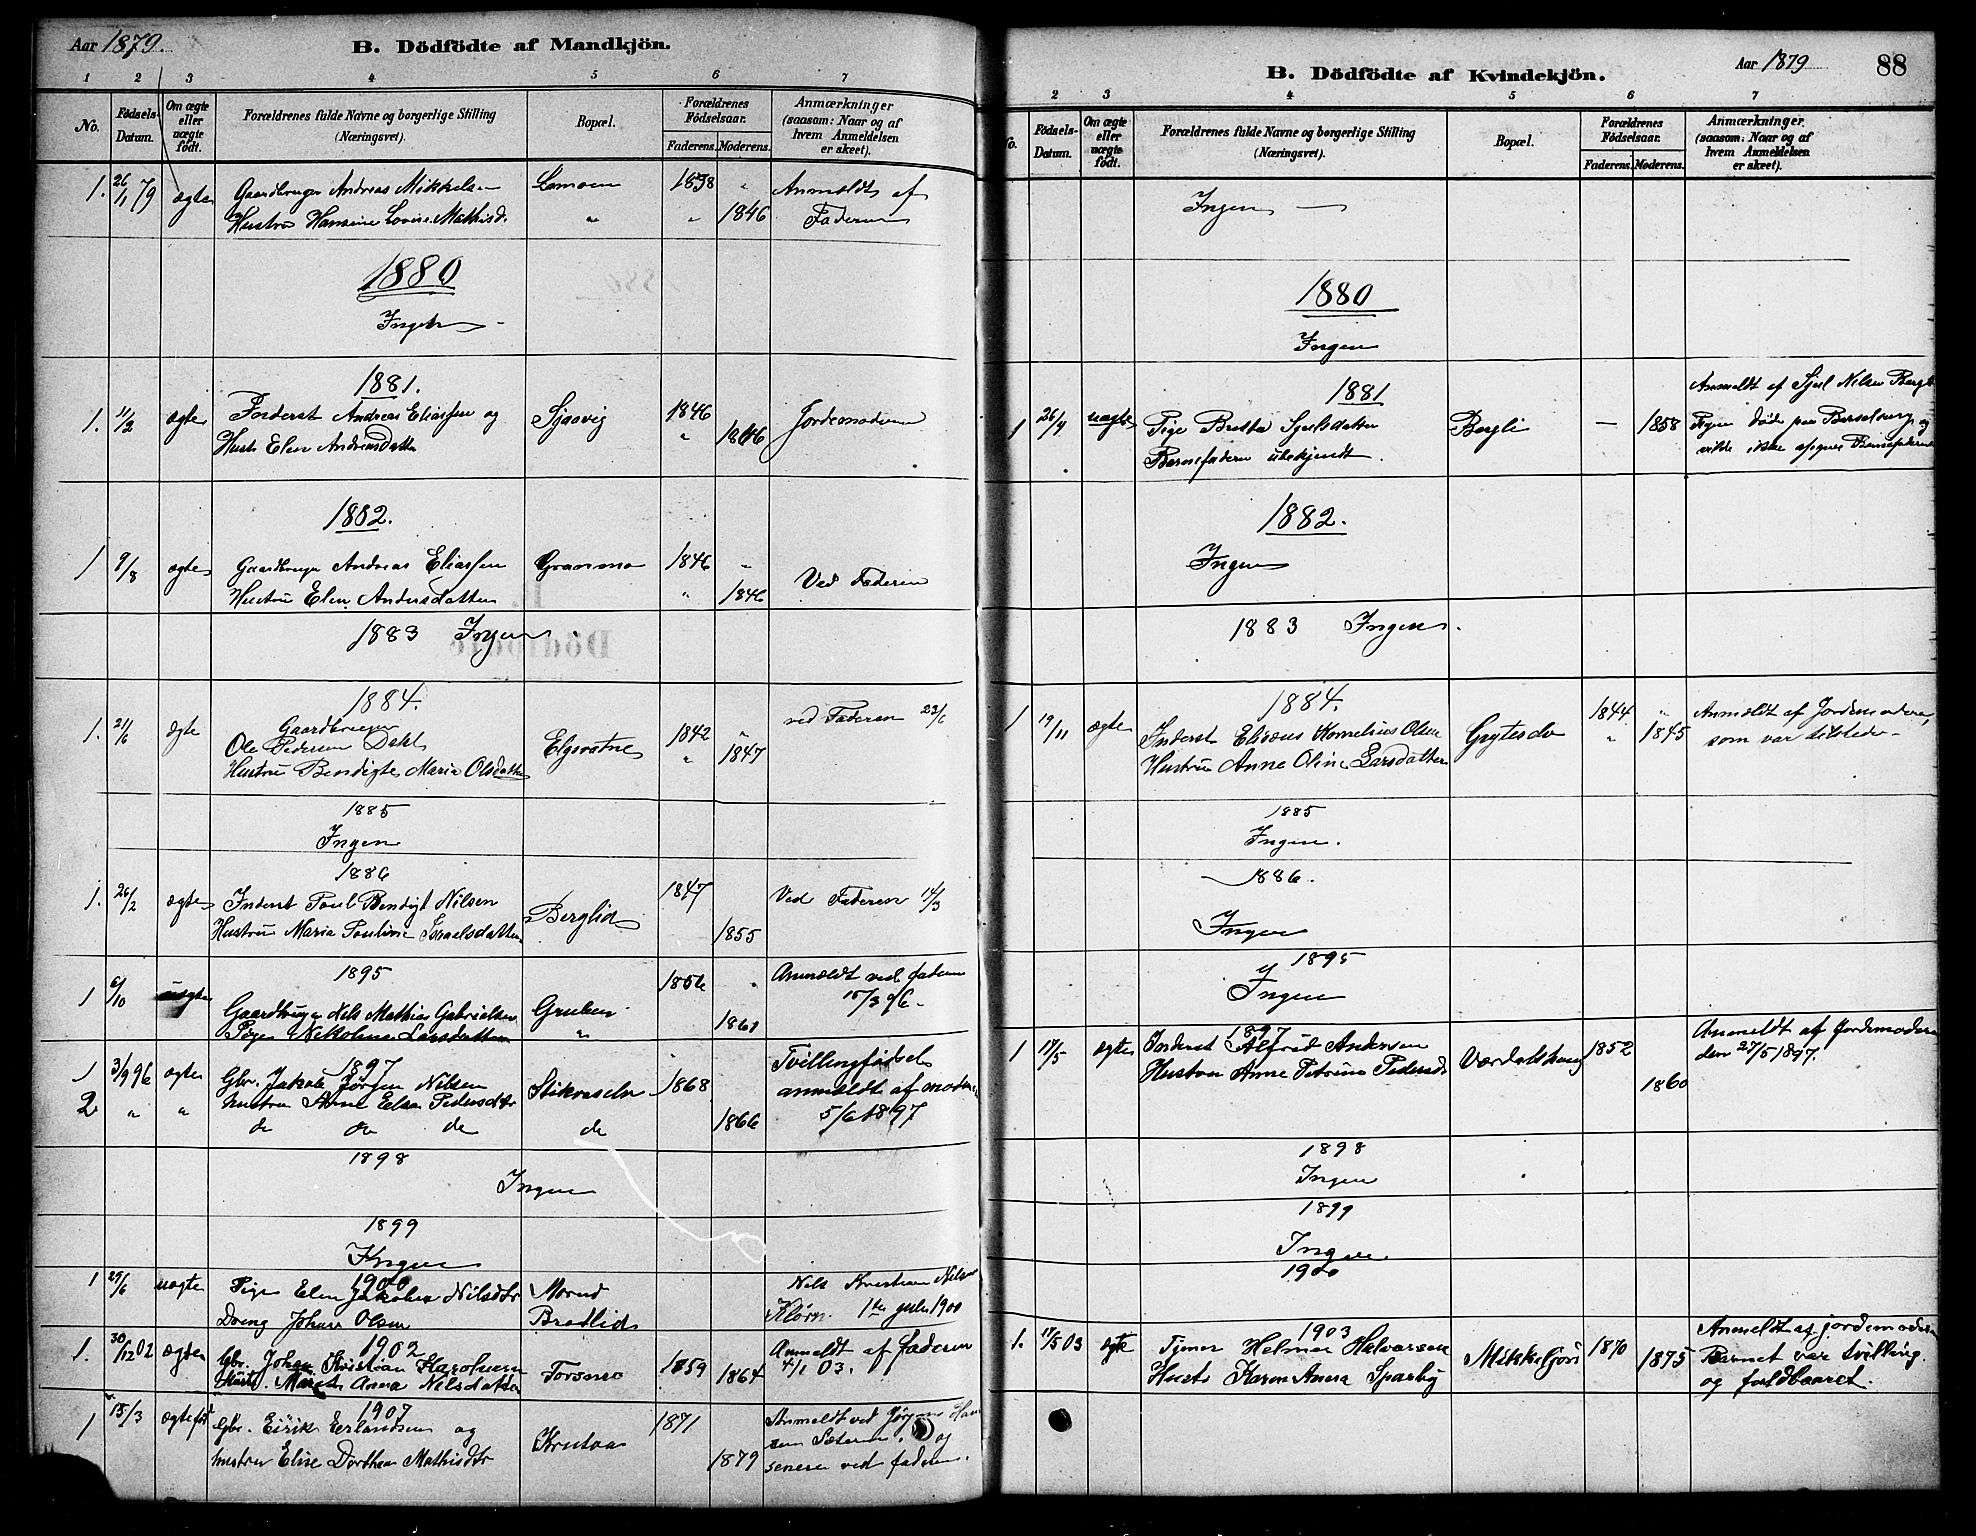 Aar 1879.
B. Dödfödte af Mandkjön.
1 2 3 4 5 6 7
No.
Födsels-Datum.
Om ægte eller uægte födt.
Forældrenes fulde Navne og borgerlige Stilling (Næringsvei).
Bopæl.
Forældrenes Födselsaar.
Faderens. Moderens.
Anmærkninger (saasom: Naar og af hvem Anmeldelsen er skeet).
1. 26/1 79 ægte Gaardbruger Andreas Mikkelsen 1838 " Anmeldt af
Hustru Hansine Lovise Mathisd. " " 1846 Faderen
1880
Ingen
1881.
1. 11/2 ægte Andreas Eliassen og Sjaavig 1846 Jordemoderen
Hust. Elen Andreasdatter " 1846
1882.
1 9/8 ægte Gaardbruger Andreas Eliassen Graanmo 1846 " Ved Faderen
Hustru Elen Andersdatter " 1846
1883 Ingen
1884.
1. 21/6 ægte Gaardbruger
Ole Pedersen Dahl Elgsvatne 1842 " ved Faderen
Hustru Bendigte Maria Olsdatter " 1847
1885
Ingen
1886
1. 26/2 ægte Inderst Poul Bendigt Nilsen Berglid 1847 Ved Faderen 14/3
Hustru Maria Pauline Israelsdatter 1855
1895
1 6/10 uægte Gaardbruger Nils Mathias Gabrielsen Gruben 1856 " Anmeldt ved faderen
Pige Nikoline Larsdatter " 1861 15/3 96
1897
1 3/9 96 ægte Gbr. Jakob Jørgen Nilsen 1868 Tvillingfødsel
2 " " hustru Anne Elen Pedersdtr 1866 anmeldt af moderen
do do do do 5/6 1897
1898
Ingen
1899
Ingen
1900
1 29/6 uægte Pige Elen Jakobea Nilsdtr Nils Kristian Nilsen
Dreng Johan Olsen Bradlid 1900
1902
1. 30/12 02 ægte Gbr. Johan Kristian Karoliussen 1859 Anmeldt af faderen
Hust. Marit Anna Nilsdatter 1864 4/1 03.
1907
1 15/3 ægtefød Gbr. Eirik Erlandsen og Krutaa 1871 Anmeldt ved Jørgen Han
hustru Elise Dorthea Mathisdtr 1879 sen og
senere ved faderen.
Aar 1879 88
B. Dödfödte af Kvindekjön.
2 3 4 5 6 7
Födsels-Datum.
Om ægte eller uægte födt.
Forældrenes fulde Navne og borgerlige Stilling (Næringsvei).
Bopæl.
Forældrenes Födselsaar.
Faderens. Moderens.
Anmærkninger (saasom: Naar og af hvem Anmeldelsen er skeet).
Ingen
1880
Ingen
1881
1 26/4 uægte Pige Berglі — 1858 Anmeldt af Sjul Nilsen Bergli
Barnefaderen ubekjendt. Pigen døde paa Barselseng og
vilde ikke opgive Barnefaderen
1882.
Ingen
1883 Ingen.
1884.
1 19/11 ægte Inderst Eliseus Kornelius Olsen 1844 " Anmeldt af Jordemoderen,
Hustru Anne Oline Larsdatter " 1845 som var tilstede
1885
Ingen.
1886.
Ingen
1895
Ingen
1897
1 17/5 ægte Inderst Alfred Andersen 1852 Anmeldt af Jordemoderen
Hustru Anne Petrine Pedersd. 1860 den 27/5 1897.
1898
Ingen
1899
Ingen.
1900
1903
1. 17/5 03 ægte Tjener Helmer Halvarsen Mikkeljord 1870 Anmeldt af jordemoderen
Hustr Karen Anna Sparby 1875 Barnet var tvilling
og fuldbaaret.